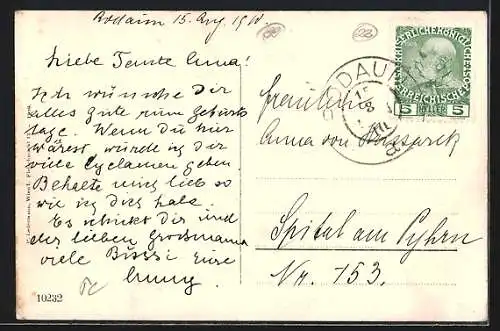 Rodaun 15. Aug. 1910.
Liebe Tante Anna!
Ich wünsche Dir
alles Gute zum Geburts
tage. Wenn Du hier
wärest, würde ich Dir
viele Cyclamen geben.
Behalte mich lieb so
wie ich Dich habe.
Es schickt Dir und
der lieben Grossmama
viele Bussi Eure
10232
RODAUN
15
8
KAISERLICHE KÖNIGLICHE
ÖSTERREICHISCHE
5 5
Fräulein
Anna von
Spital am Pyhrn
Nr. 153.